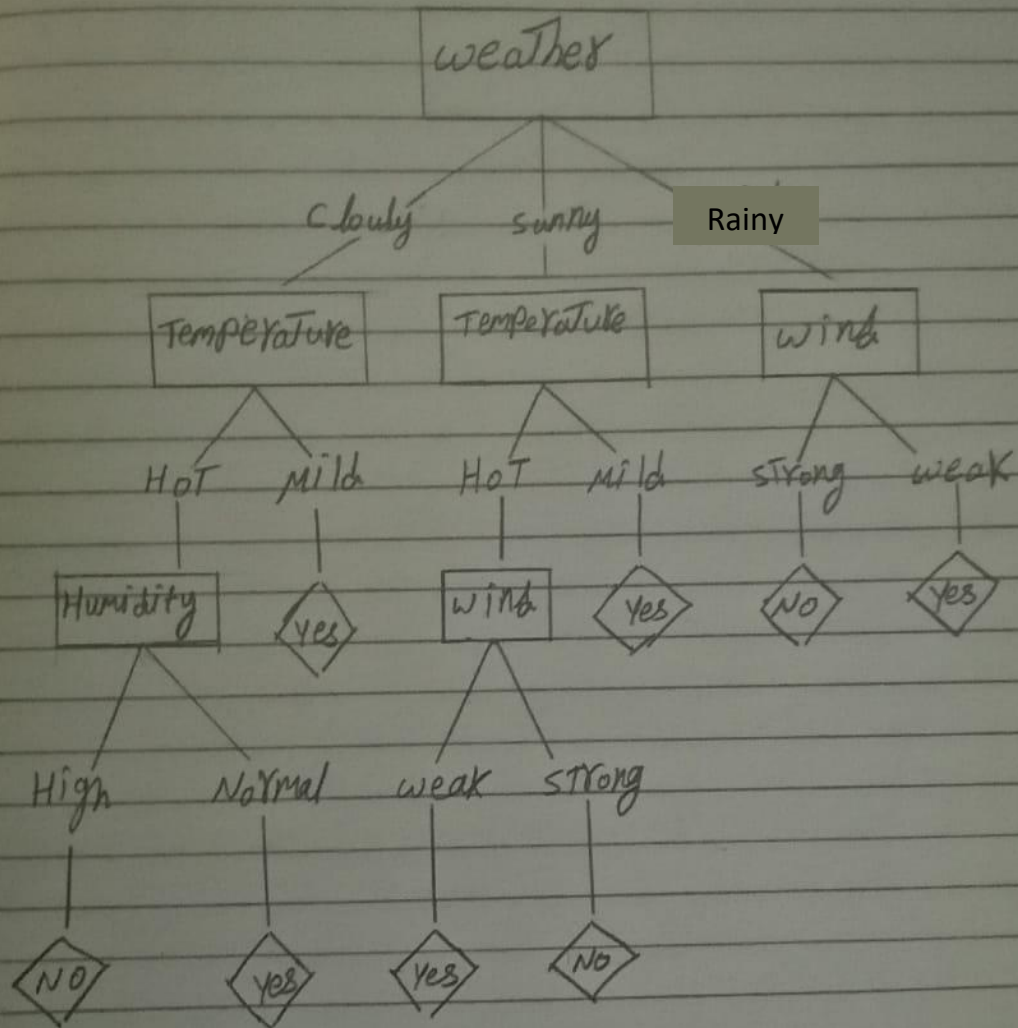 weather
Clouly sunny Rainy
Temperature Temperature wind
HOT Mild HOT Mild strong weak
Humidity Yes wind Yes NO Yes
High Normal weak strong
NO Yes Yes NO